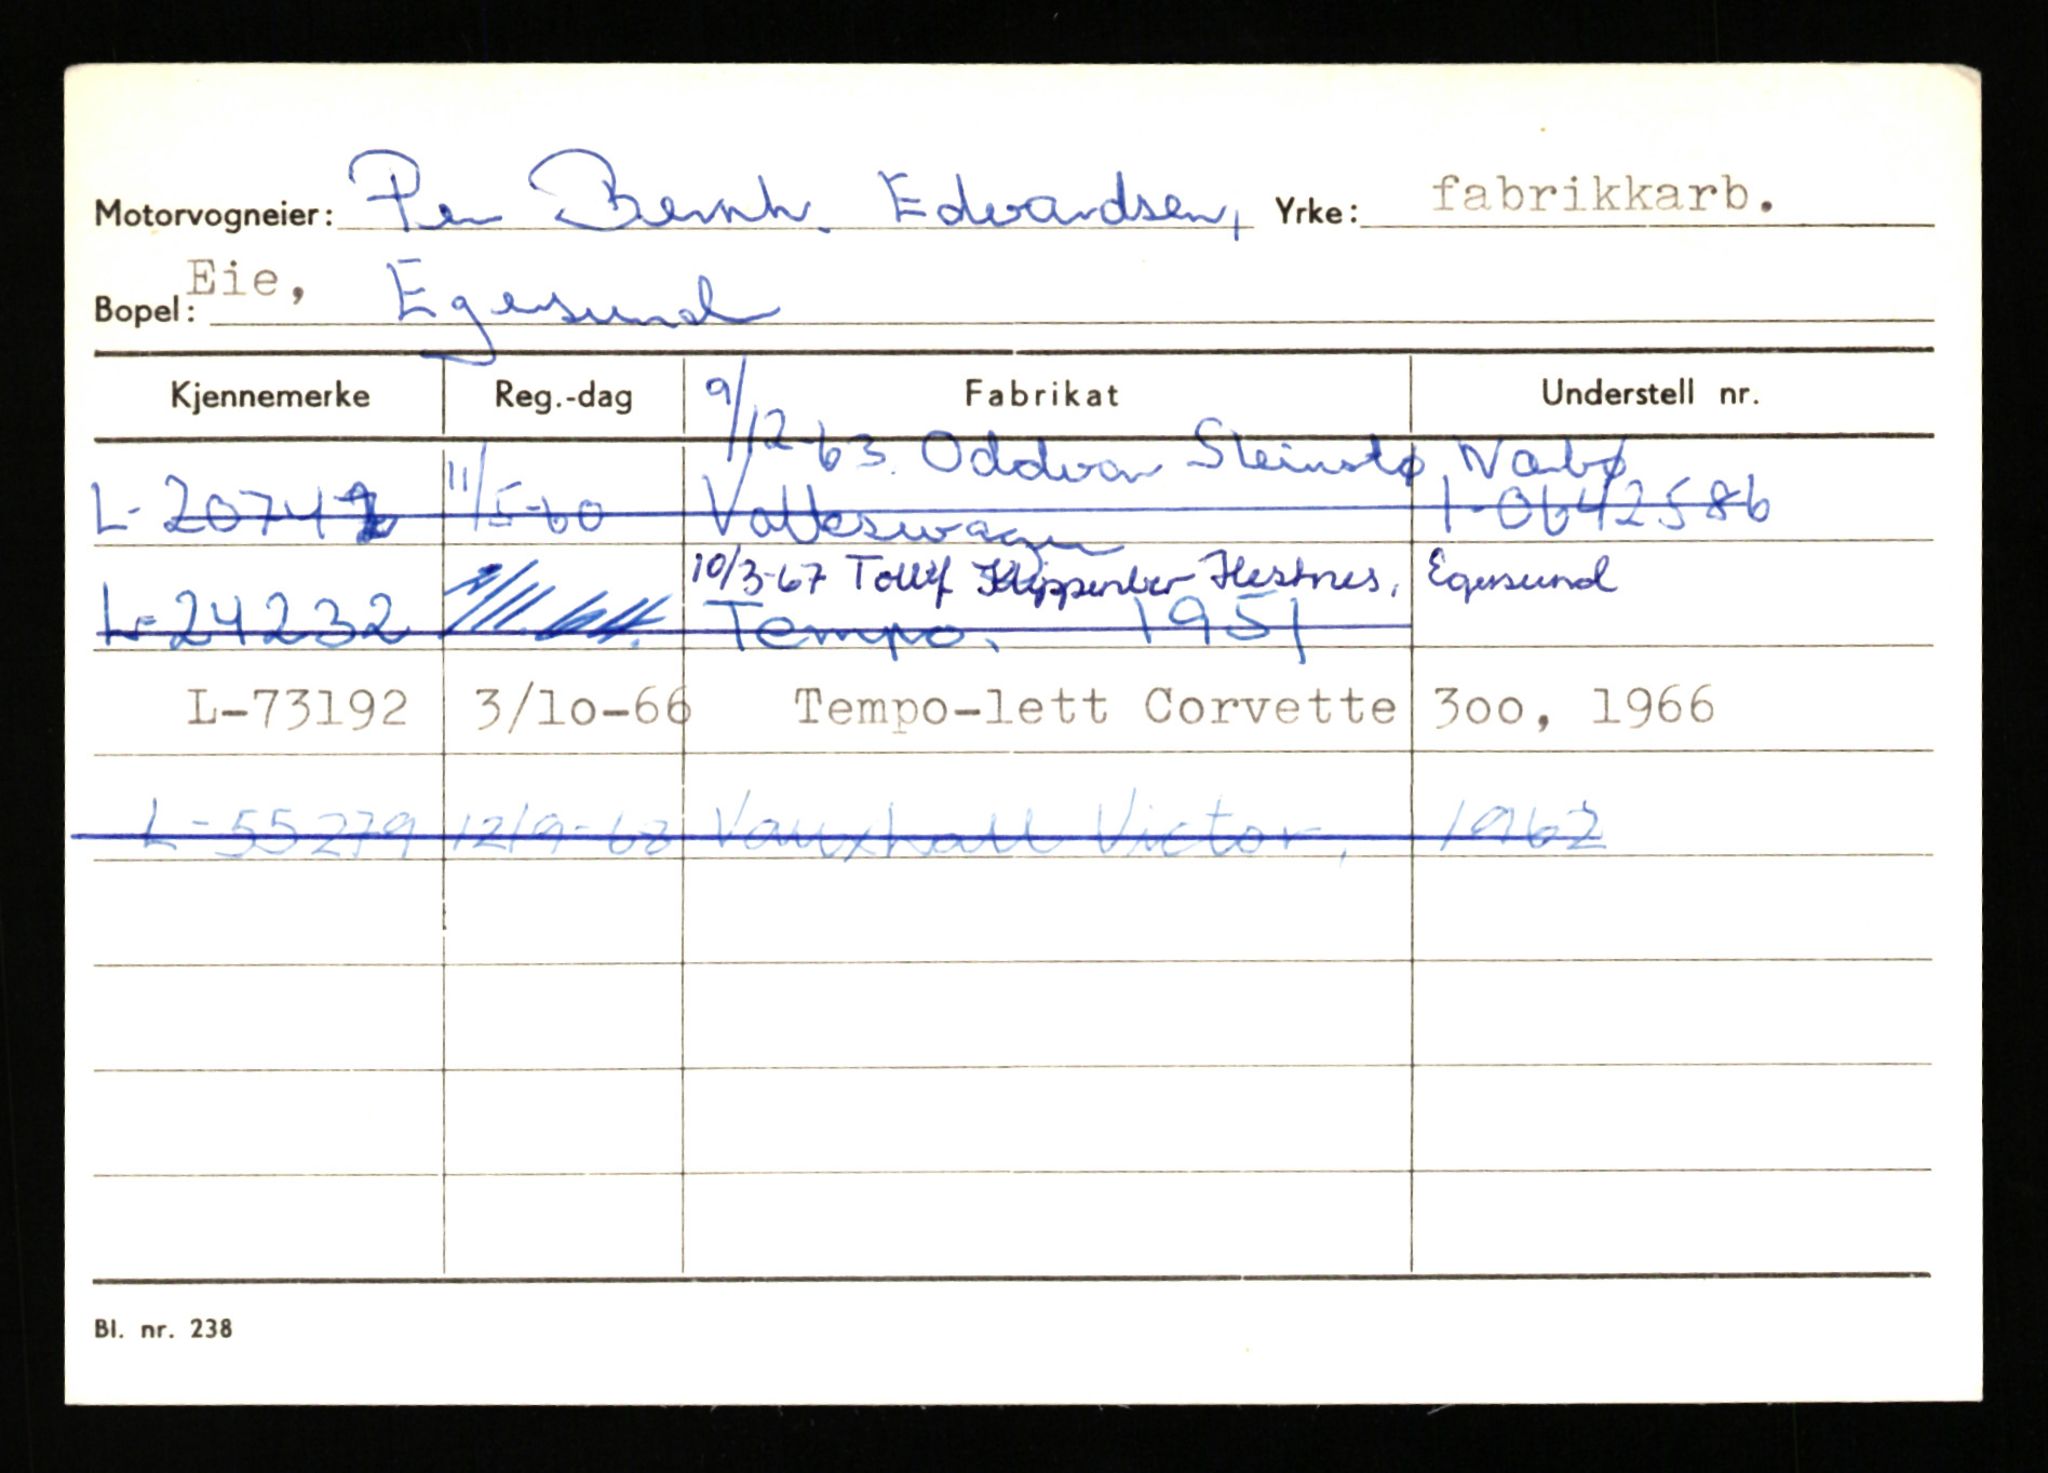 Motorvogneier: Per Bernh. Edvardsen, Yrke: fabrikkarb.
Bopel: Eie, Egersund
Kjennemerke Reg.-dag Fabrikat Understell nr.
9/12-63. Oddvar Steinstø Nærbø
L-20742 11/5-60 Volkswagen 1-0642586
10/3-67 Tollif Hestnes, Egersund
L-24232 Tempo. 1951
L-73192 3/10-66 Tempo-lett Corvette 300, 1966
L-55279 12/9-68 Vauxhall Victor, 1962
Bl. nr. 238